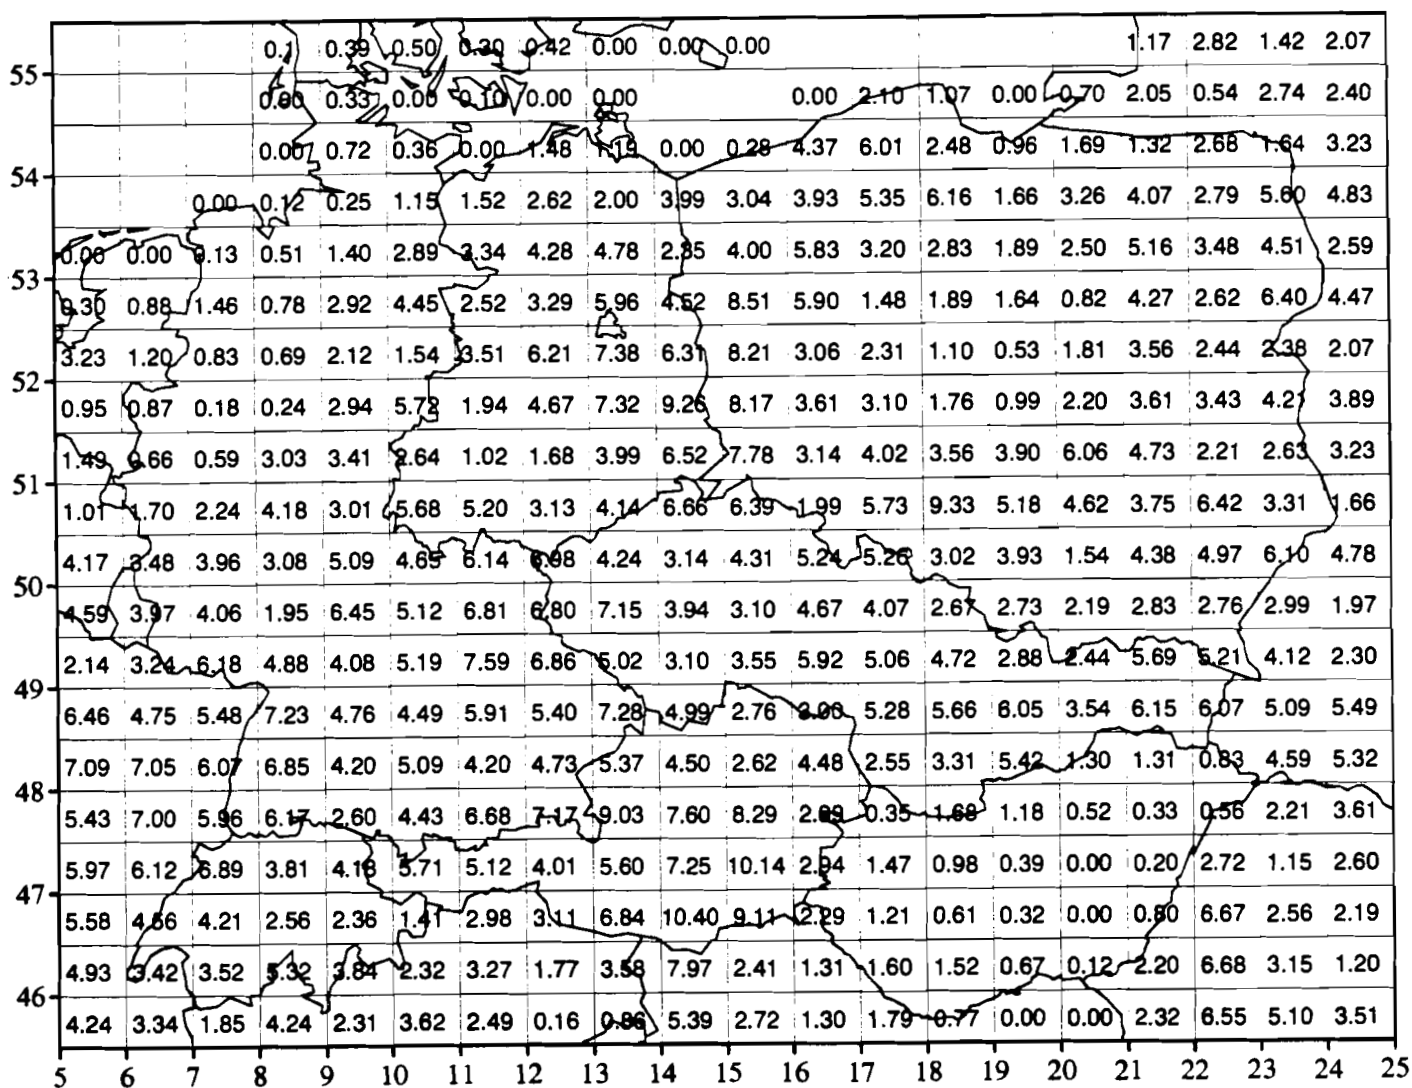 0.1 0.39 0.50 0.30 0.42 0.00 0.00 0.00 1.17 2.82 1.42 2.07
55
0.00 0.33 0.00 0.10 0.00 0.00 0.00 2.10 1.07 0.00 0.70 2.05 0.54 2.74 2.40
0.00 0.72 0.36 0.00 1.48 1.19 0.00 0.28 4.37 6.01 2.48 0.96 1.69 1.32 2.68 1.64 3.23
54
0.00 0.12 0.25 1.15 1.52 2.62 2.00 3.99 3.04 3.93 5.35 6.16 1.66 3.26 4.07 2.79 5.60 4.83
0.00 0.00 0.13 0.51 1.40 2.89 3.34 4.28 4.78 2.85 4.00 5.83 3.20 2.83 1.89 2.50 5.16 3.48 4.51 2.59
53
0.30 0.88 1.46 0.78 2.92 4.45 2.52 3.29 5.96 4.52 8.51 5.90 1.48 1.89 1.64 0.82 4.27 2.62 6.40 4.47
3.23 1.20 0.83 0.69 2.12 1.54 3.51 6.21 7.38 6.31 8.21 3.06 2.31 1.10 0.53 1.81 3.56 2.44 2.38 2.07
52
0.95 0.87 0.18 0.24 2.94 5.72 1.94 4.67 7.32 9.26 8.17 3.61 3.10 1.76 0.99 2.20 3.61 3.43 4.21 3.89
1.49 0.66 0.59 3.03 3.41 2.64 1.02 1.68 3.99 6.52 7.78 3.14 4.02 3.56 3.90 6.06 4.73 2.21 2.63 3.23
51
1.01 1.70 2.24 4.18 3.01 5.68 5.20 3.13 4.14 6.66 6.39 1.99 5.73 9.33 5.18 4.62 3.75 6.42 3.31 1.66
4.17 3.48 3.96 3.08 5.09 4.65 6.14 6.98 4.24 3.14 4.31 5.24 5.26 3.02 3.93 1.54 4.38 4.97 6.10 4.78
50
4.59 3.97 4.06 1.95 6.45 5.12 6.81 6.80 7.15 3.94 3.10 4.67 4.07 2.67 2.73 2.19 2.83 2.76 2.99 1.97
2.14 3.24 6.18 4.88 4.08 5.19 7.59 6.86 5.02 3.10 3.55 5.92 5.06 4.72 2.88 2.44 5.69 5.21 4.12 2.30
49
6.46 4.75 5.48 7.23 4.76 4.49 5.91 5.40 7.28 4.99 2.76 3.00 5.28 5.66 6.05 3.54 6.15 6.07 5.09 5.49
7.09 7.05 6.07 6.85 4.20 5.09 4.20 4.73 5.37 4.50 2.62 4.48 2.55 3.31 5.42 1.30 1.31 0.83 4.59 5.32
48
5.43 7.00 5.96 6.17 2.60 4.43 6.68 7.17 9.03 7.60 8.29 2.09 0.35 1.68 1.18 0.52 0.33 0.56 2.21 3.61
5.97 6.12 6.89 3.81 4.18 5.71 5.12 4.01 5.60 7.25 10.14 2.94 1.47 0.98 0.39 0.00 0.20 2.72 1.15 2.60
47
5.58 4.66 4.21 2.56 2.36 1.41 2.98 3.11 6.84 10.40 9.11 2.29 1.21 0.61 0.32 0.00 0.80 6.67 2.56 2.19
4.93 3.42 3.52 5.32 3.84 2.32 3.27 1.77 3.58 7.97 2.41 1.31 1.60 1.52 0.67 0.12 2.20 6.68 3.15 1.20
46
4.24 3.34 1.85 4.24 2.31 3.62 2.49 0.16 0.86 5.39 2.72 1.30 1.79 0.77 0.00 0.00 2.32 6.55 5.10 3.51
5 6 7 8 9 10 11 12 13 14 15 16 17 18 19 20 21 22 23 24 25